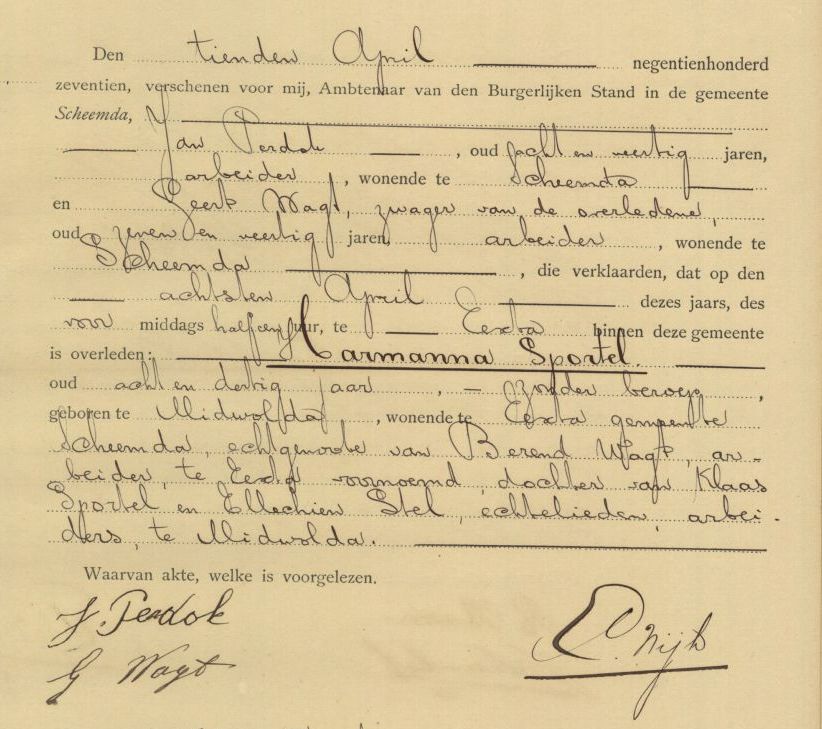 Den tienden April negentienhonderd
zeventien, verschenen voor mij, Ambtenaar van den Burgerlijken Stand in de gemeente
Scheemda,
Jan Perdok , oud acht en veertig jaren,
arbeider , wonende te Scheemda
en Geert Wagt, zwager van de overledene,
oud zeven en veertig jaren, arbeider , wonende te
Scheemda , die verklaarden, dat op den
achtsten April dezes jaars, des
voor middags half een uur, te Eexta binnen deze gemeente
is overleden: Harmanna Sportel.
oud acht en dertig jaar , zonder beroep ,
geboren te Midwolda , wonende te Eexta gemeente
Scheemda, echtgenoote van Berend Wagt, ar-
beider, te Eexta voornoemd, dochter van Klaas
Sportel en Ellechien Stel, echtelieden, arbei-
ders, te Midwolda.
Waarvan akte, welke is voorgelezen.
J. Perdok
G Wagt